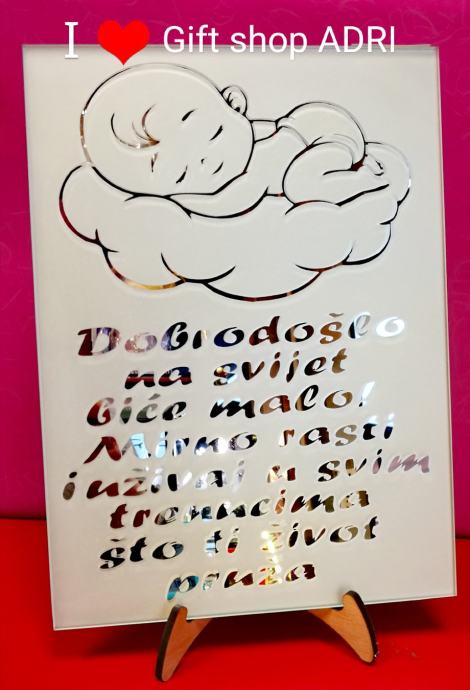 I ❤ Gift shop ADRI
Dobrodošlo
na svijet
biće malo!
Mirno rasti
i uživaj u svim
trenucima
što ti život
pruža